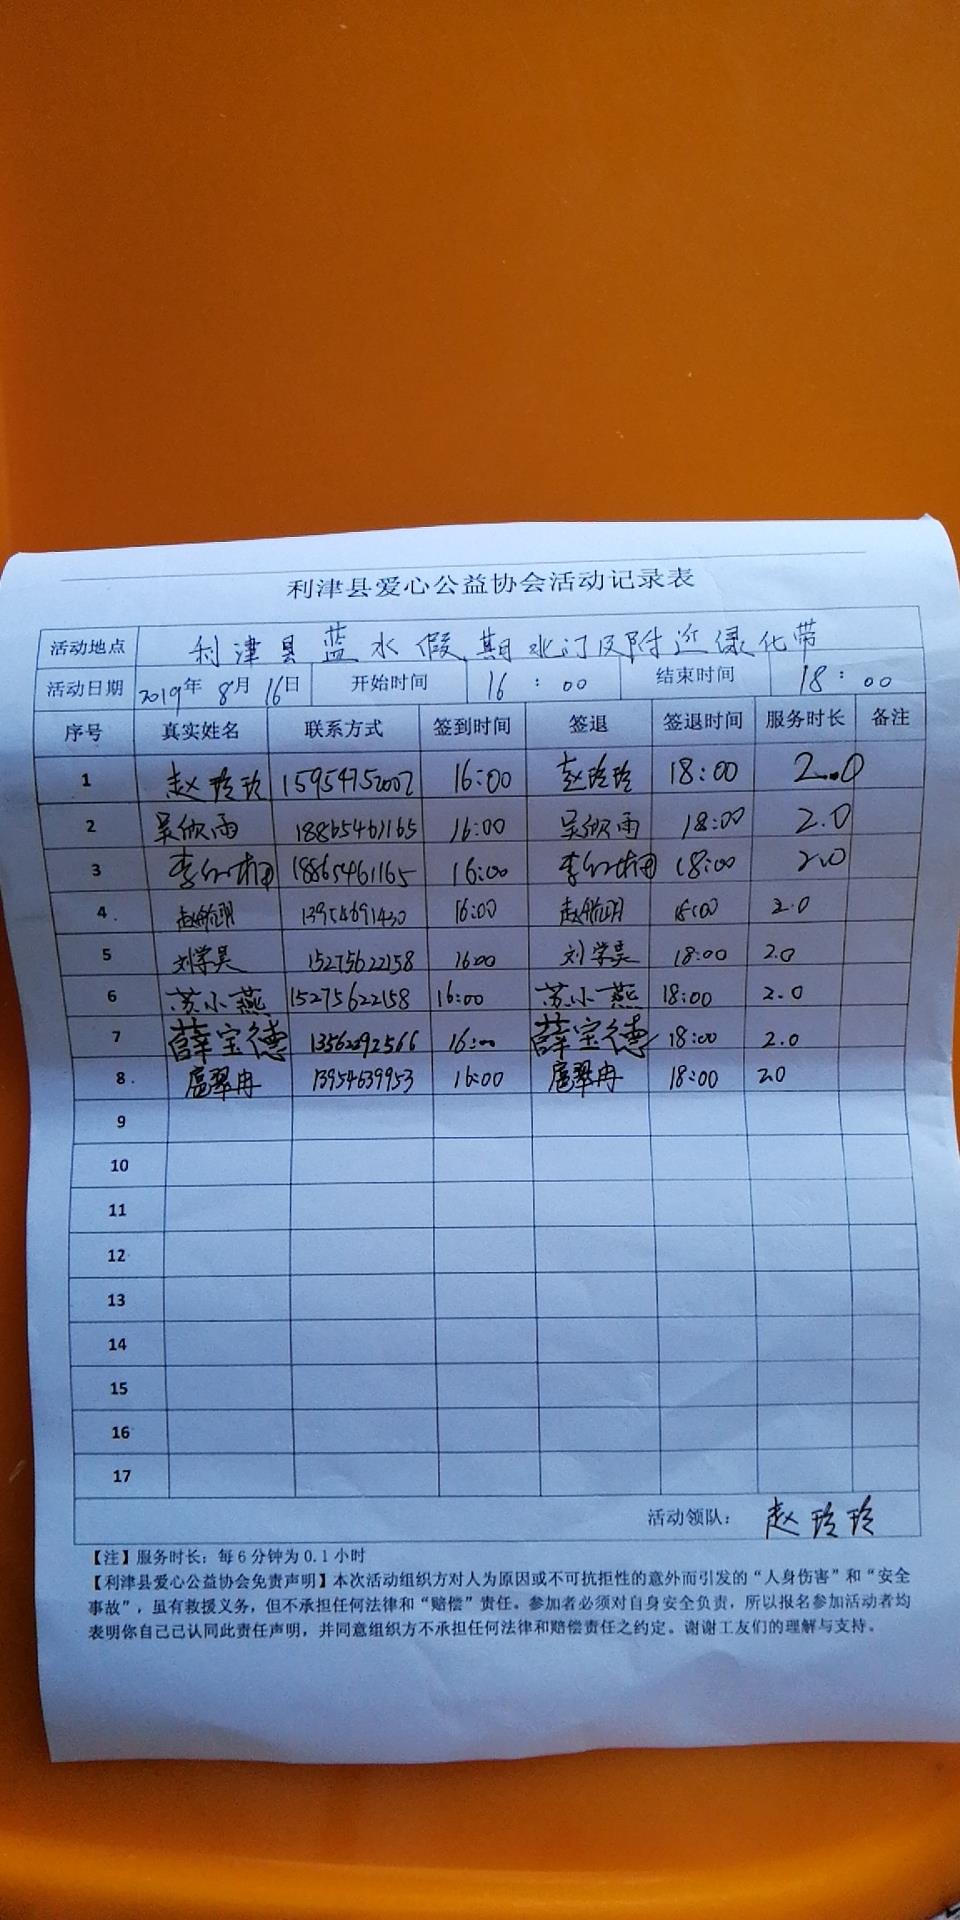 利津县爱心公益协会活动记录表
活动地点 利津县蓝水假期北门及附近绿化带
活动日期 2019年 8月 16日 开始时间 16 : 00 结束时间 18 : 00
序号 真实姓名 联系方式 签到时间 签退 签退时间 服务时长 备注
1 赵玲玲 15954752002 16:00 赵玲玲 18:00 2.0
2 吴欣雨 18865461165 16:00 吴欣雨 18:00 2.0
3 18865461165 16:00 18:00 2.0
4. 赵航明 13954691430 16:00 赵航明 18:00 2.0
5 刘学昊 15275622158 16:00 刘学昊 18:00 2.0
6 苏小燕 15275622158 16:00 苏小燕 18:00 2.0
7 薛宝德 16:00 薛宝德 18:00 2.0
8. 扈翠冉 13954639953 16:00 扈翠冉 18:00 2.0
9
10
11
12
13
14
15
16
17
活动领队： 赵玲玲
【注】服务时长：每6分钟为0.1小时
【利津县爱心公益协会免责声明】本次活动组织方对人为原因或不可抗拒性的意外而引发的“人身伤害”和“安全
事故”，虽有救援义务，但不承担任何法律和“赔偿”责任。参加者必须对自身安全负责，所以报名参加活动者均
表明你自己已认同此责任声明，并同意组织方不承担任何法律和赔偿责任之约定。谢谢工友们的理解与支持。